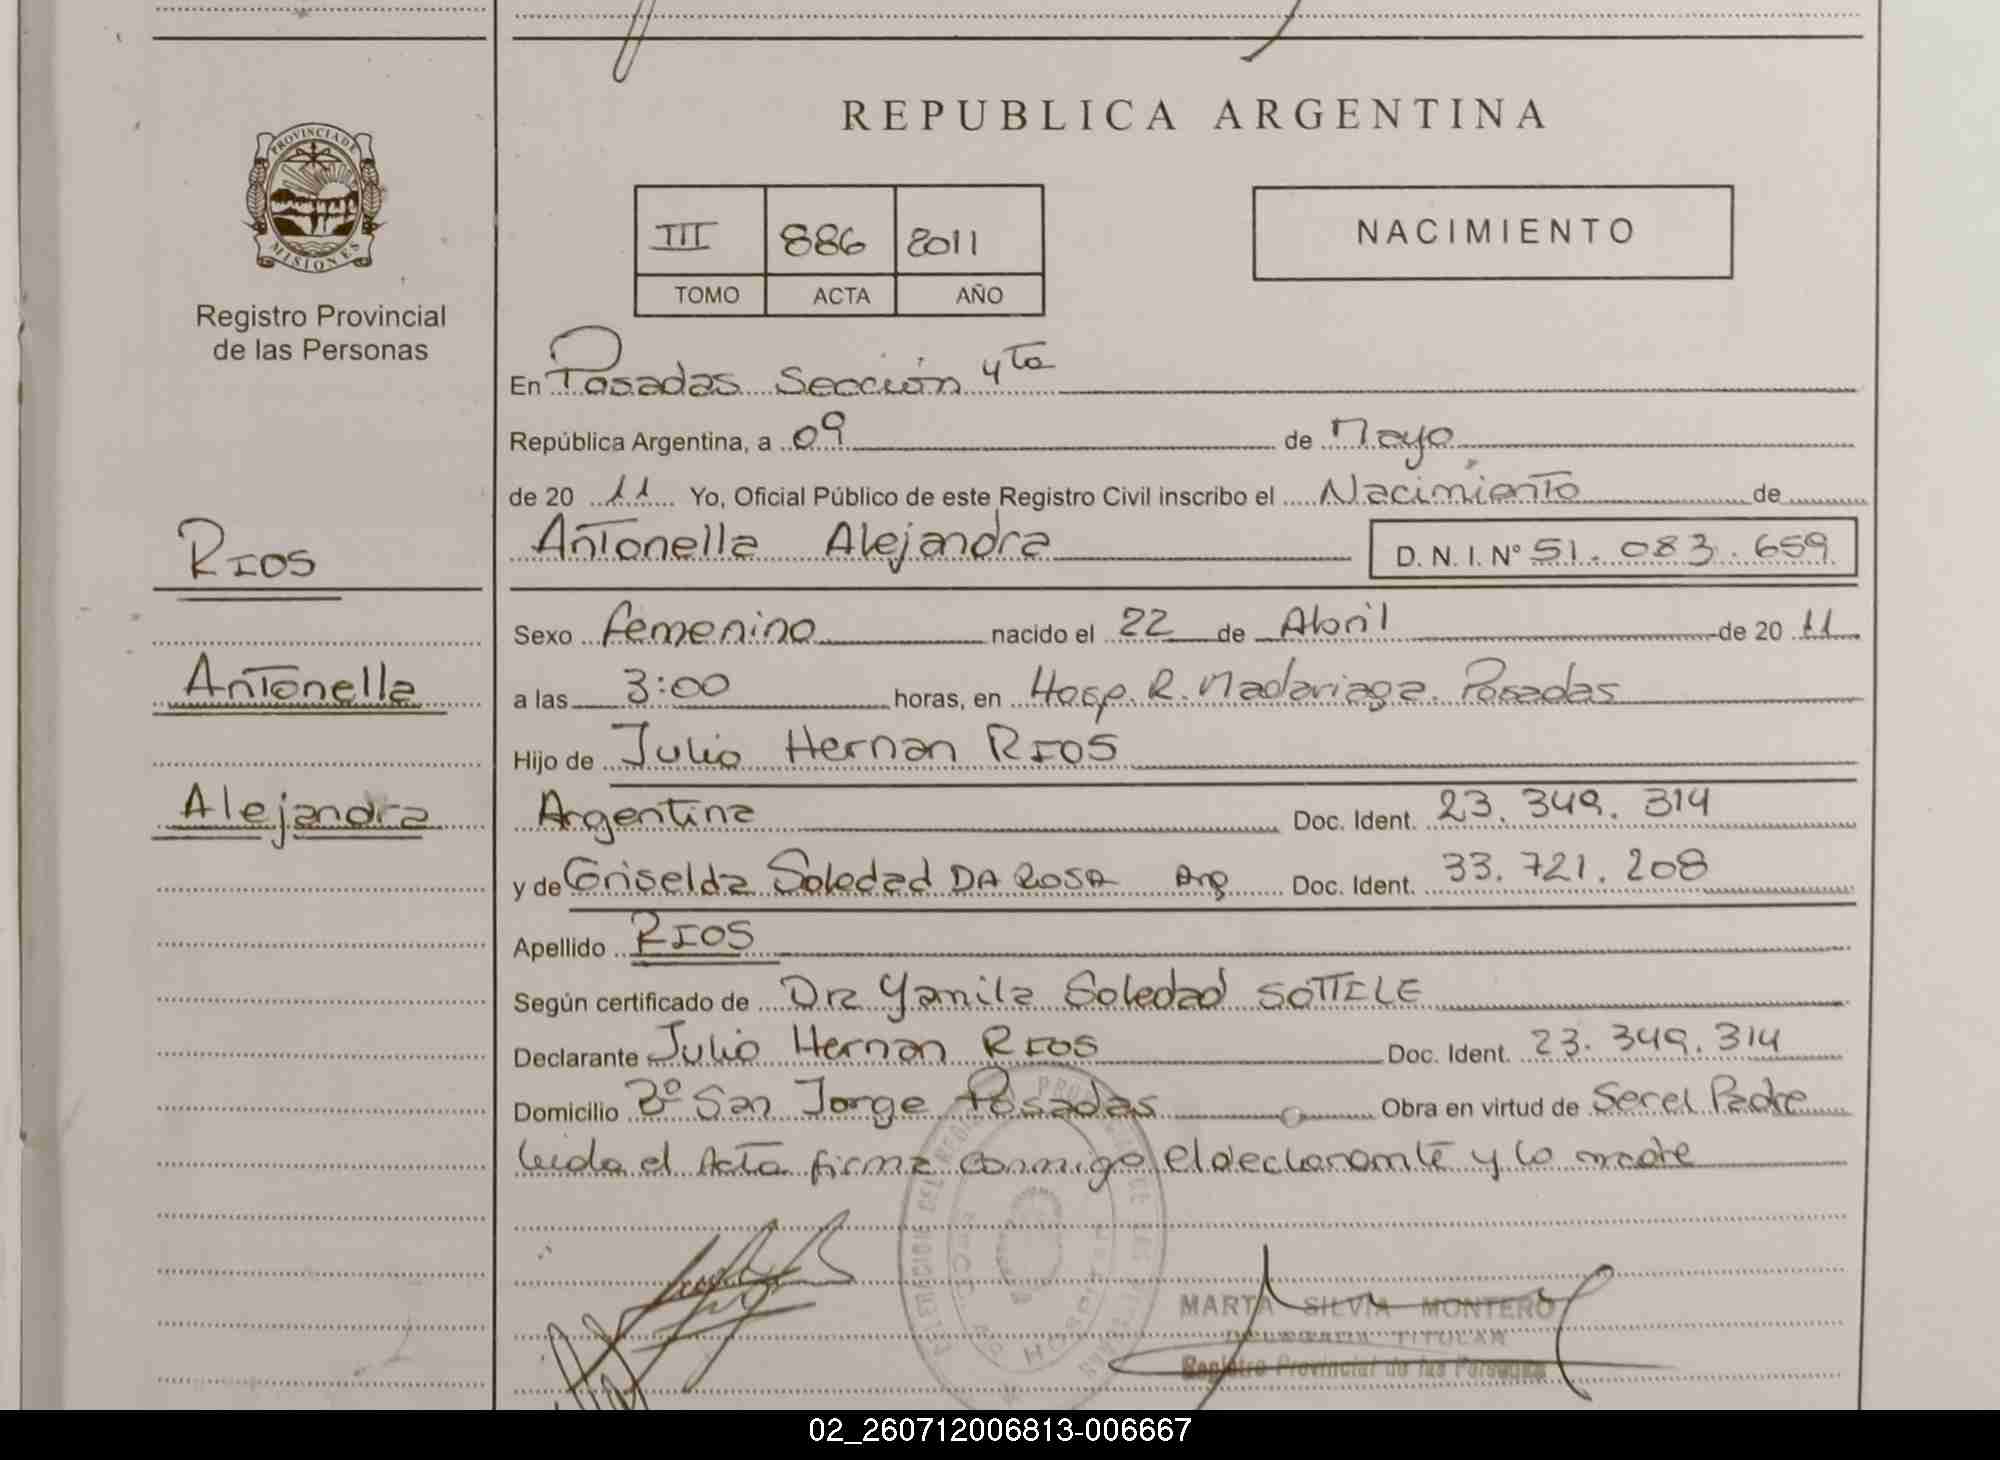 REPUBLICA ARGENTINA
PROVINCIA DE MISIONES
Registro Provincial
de las Personas
III 886 2011
TOMO ACTA AÑO
NACIMIENTO
En Posadas Sección 4ta
República Argentina, a 09 de Mayo
de 20 11 Yo, Oficial Público de este Registro Civil inscribo el Nacimiento de
RIOS
Antonella Alejandra D. N. I. Nº 51.083.659
Sexo femenino nacido el 22 de Abril de 20 11
Antonella
a las 3:00 horas, en Hosp. R. Madariaga. Posadas
Hijo de Julio Hernan RIOS
Alejandra
Argentina Doc. Ident. 23.349.314
y de Griselda Soledad DA ROSA Arg Doc. Ident. 33.721.208
Apellido RIOS
Según certificado de Dra Yanila Soledad SOTTILE
Declarante Julio Hernan RIOS Doc. Ident. 23.349.314
Domicilio Bº San Jorge Posadas Obra en virtud de Ser el Padre
leida el Acta firma conmigo el declarante y la madre
MARTA SILVIA MONTERO
DELEGADA TITULAR
Registro Provincial de las Personas
02_260712006813-006667